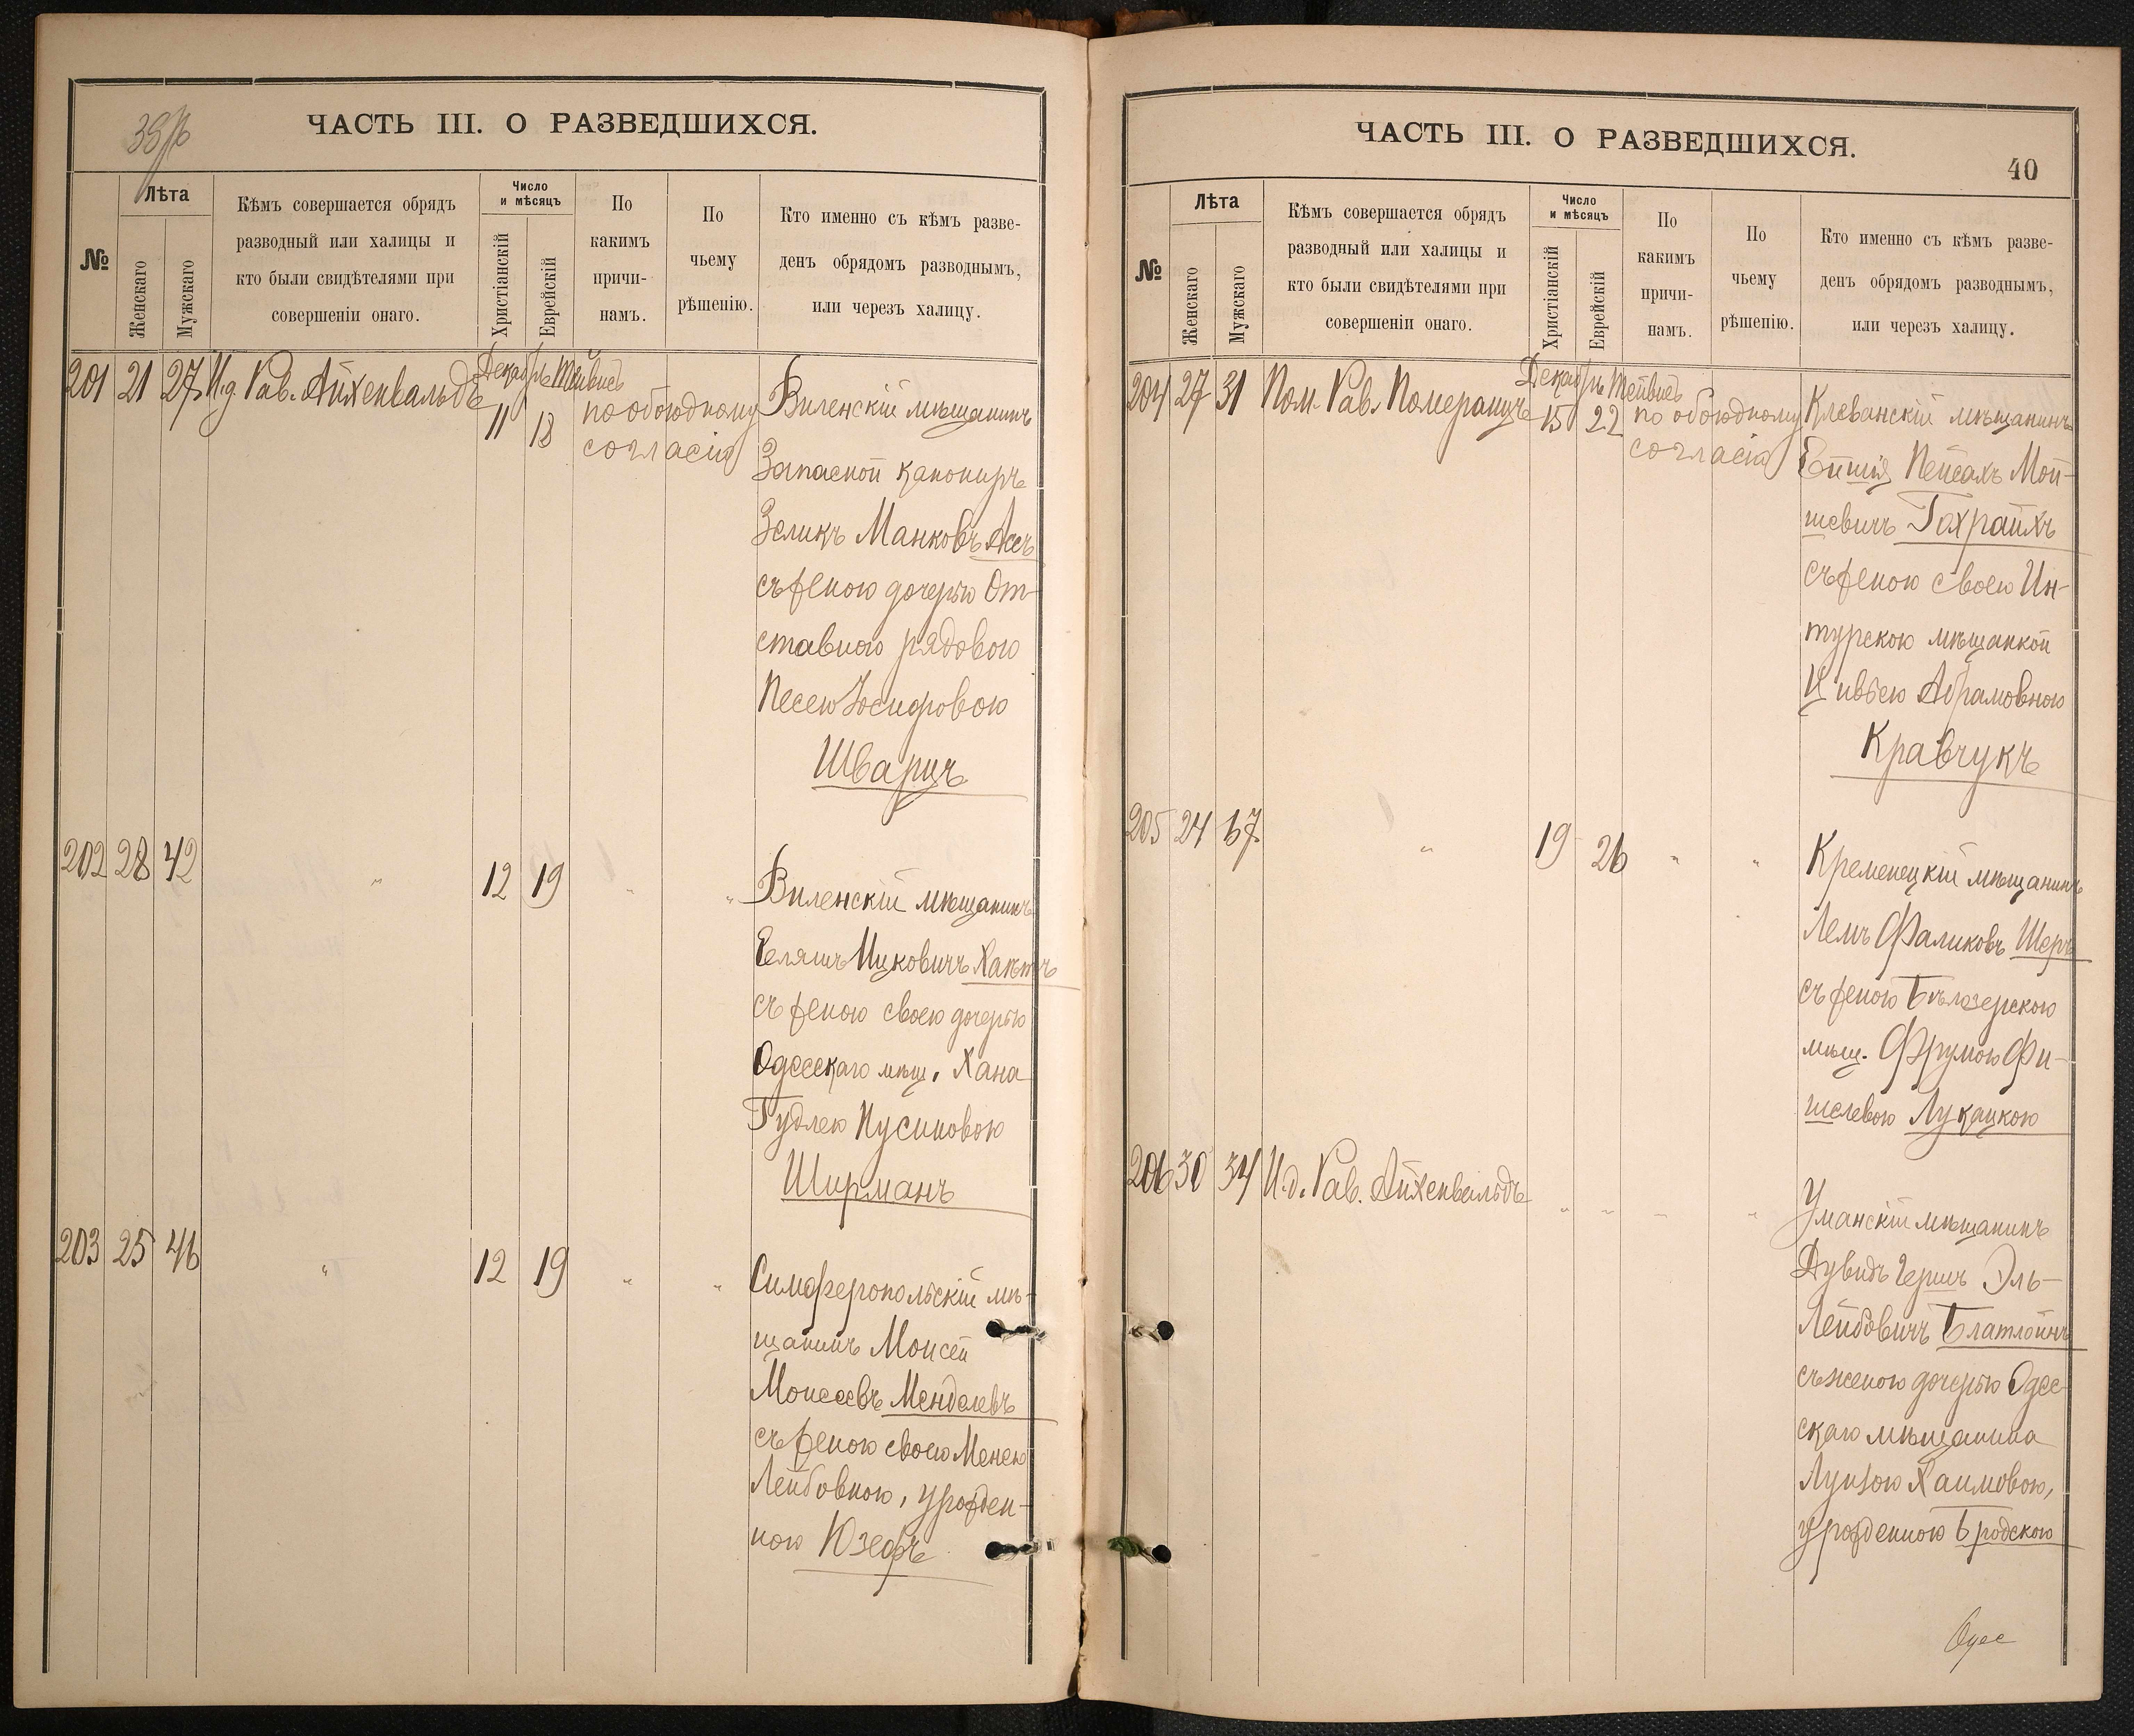 ЧАСТЬ III. О РАЗВЕДШИХСЯ.
№
Лѣта
Женскаго
Мужскаго
Кѣмъ совершается обрядъ
разводный или халицы и
кто были свидѣтелями при
совершеніи онаго.
Число
и мѣсяцъ
Христіанскій
Еврейскій
По
какимъ
причи-
намъ.
По
чьему
рѣшенію.
Кто именно съ кѣмъ разве-
денъ обрядомъ разводнымъ,
или черезъ халицу.
201 21 27 И.д. Рав. Айхенвальдъ Декабрь Тейвисъ
11 18 по обоюдному
согласію
Виленскій мѣщанинъ
Запасной канониръ
Зеликъ Манковъ Ассъ
съ женою дочерью От-
ставного рядового
Песею Іосифовою
Шварцъ
202 28 42 " 12 19 " "
Виленскій мѣщанинъ
Еляшъ Ицковичъ
съ женою своею дочерью
Одесскаго мѣщ. Хана
Гудлею Нусиновою
Ширманъ
203 25 46 " 12 19 " "
Симферопольскій мѣ-
щанинъ Моисей
Моисеевъ Менделевъ
съ женою своею Менею
Лейбовною, урожден-
ною Юзефъ
ЧАСТЬ III. О РАЗВЕДШИХСЯ.
40
№
Лѣта
Женскаго
Мужскаго
Кѣмъ совершается обрядъ
разводный или халицы и
кто были свидѣтелями при
совершеніи онаго.
Число
и мѣсяцъ
Христіанскій
Еврейскій
По
какимъ
причи-
намъ.
По
чьему
рѣшенію.
Кто именно съ кѣмъ разве-
денъ обрядомъ разводнымъ,
или черезъ халицу.
204 27 31 Пом. Рав. Померанцъ Декабрь Тейвисъ
15 22 по обоюдному
согласію
Клеванскій мѣщанинъ
Пейсахъ Мой-
шевичъ Гохрайхъ
съ женою своею Ин-
турскою мѣщанкой
Цивьею Абрамовною
Кравчукъ
205 24 67 " 19 26 " "
Кременецкій мѣщанинъ
Лемъ Фаликовъ Шеръ
съ женою Бѣлозерскою
мѣщ. Фрумою Фи-
шелевою Лукацкою
206 30 34 И.д. Рав. Айхенвальдъ " " " "
Уманскій мѣщанинъ
Дувидъ Гершъ Эль-
Лейбовичъ
съ женою дочерью Одес
скаго мѣщанина
Луизою Хаимовою,
урожденною Бродскою
Одес